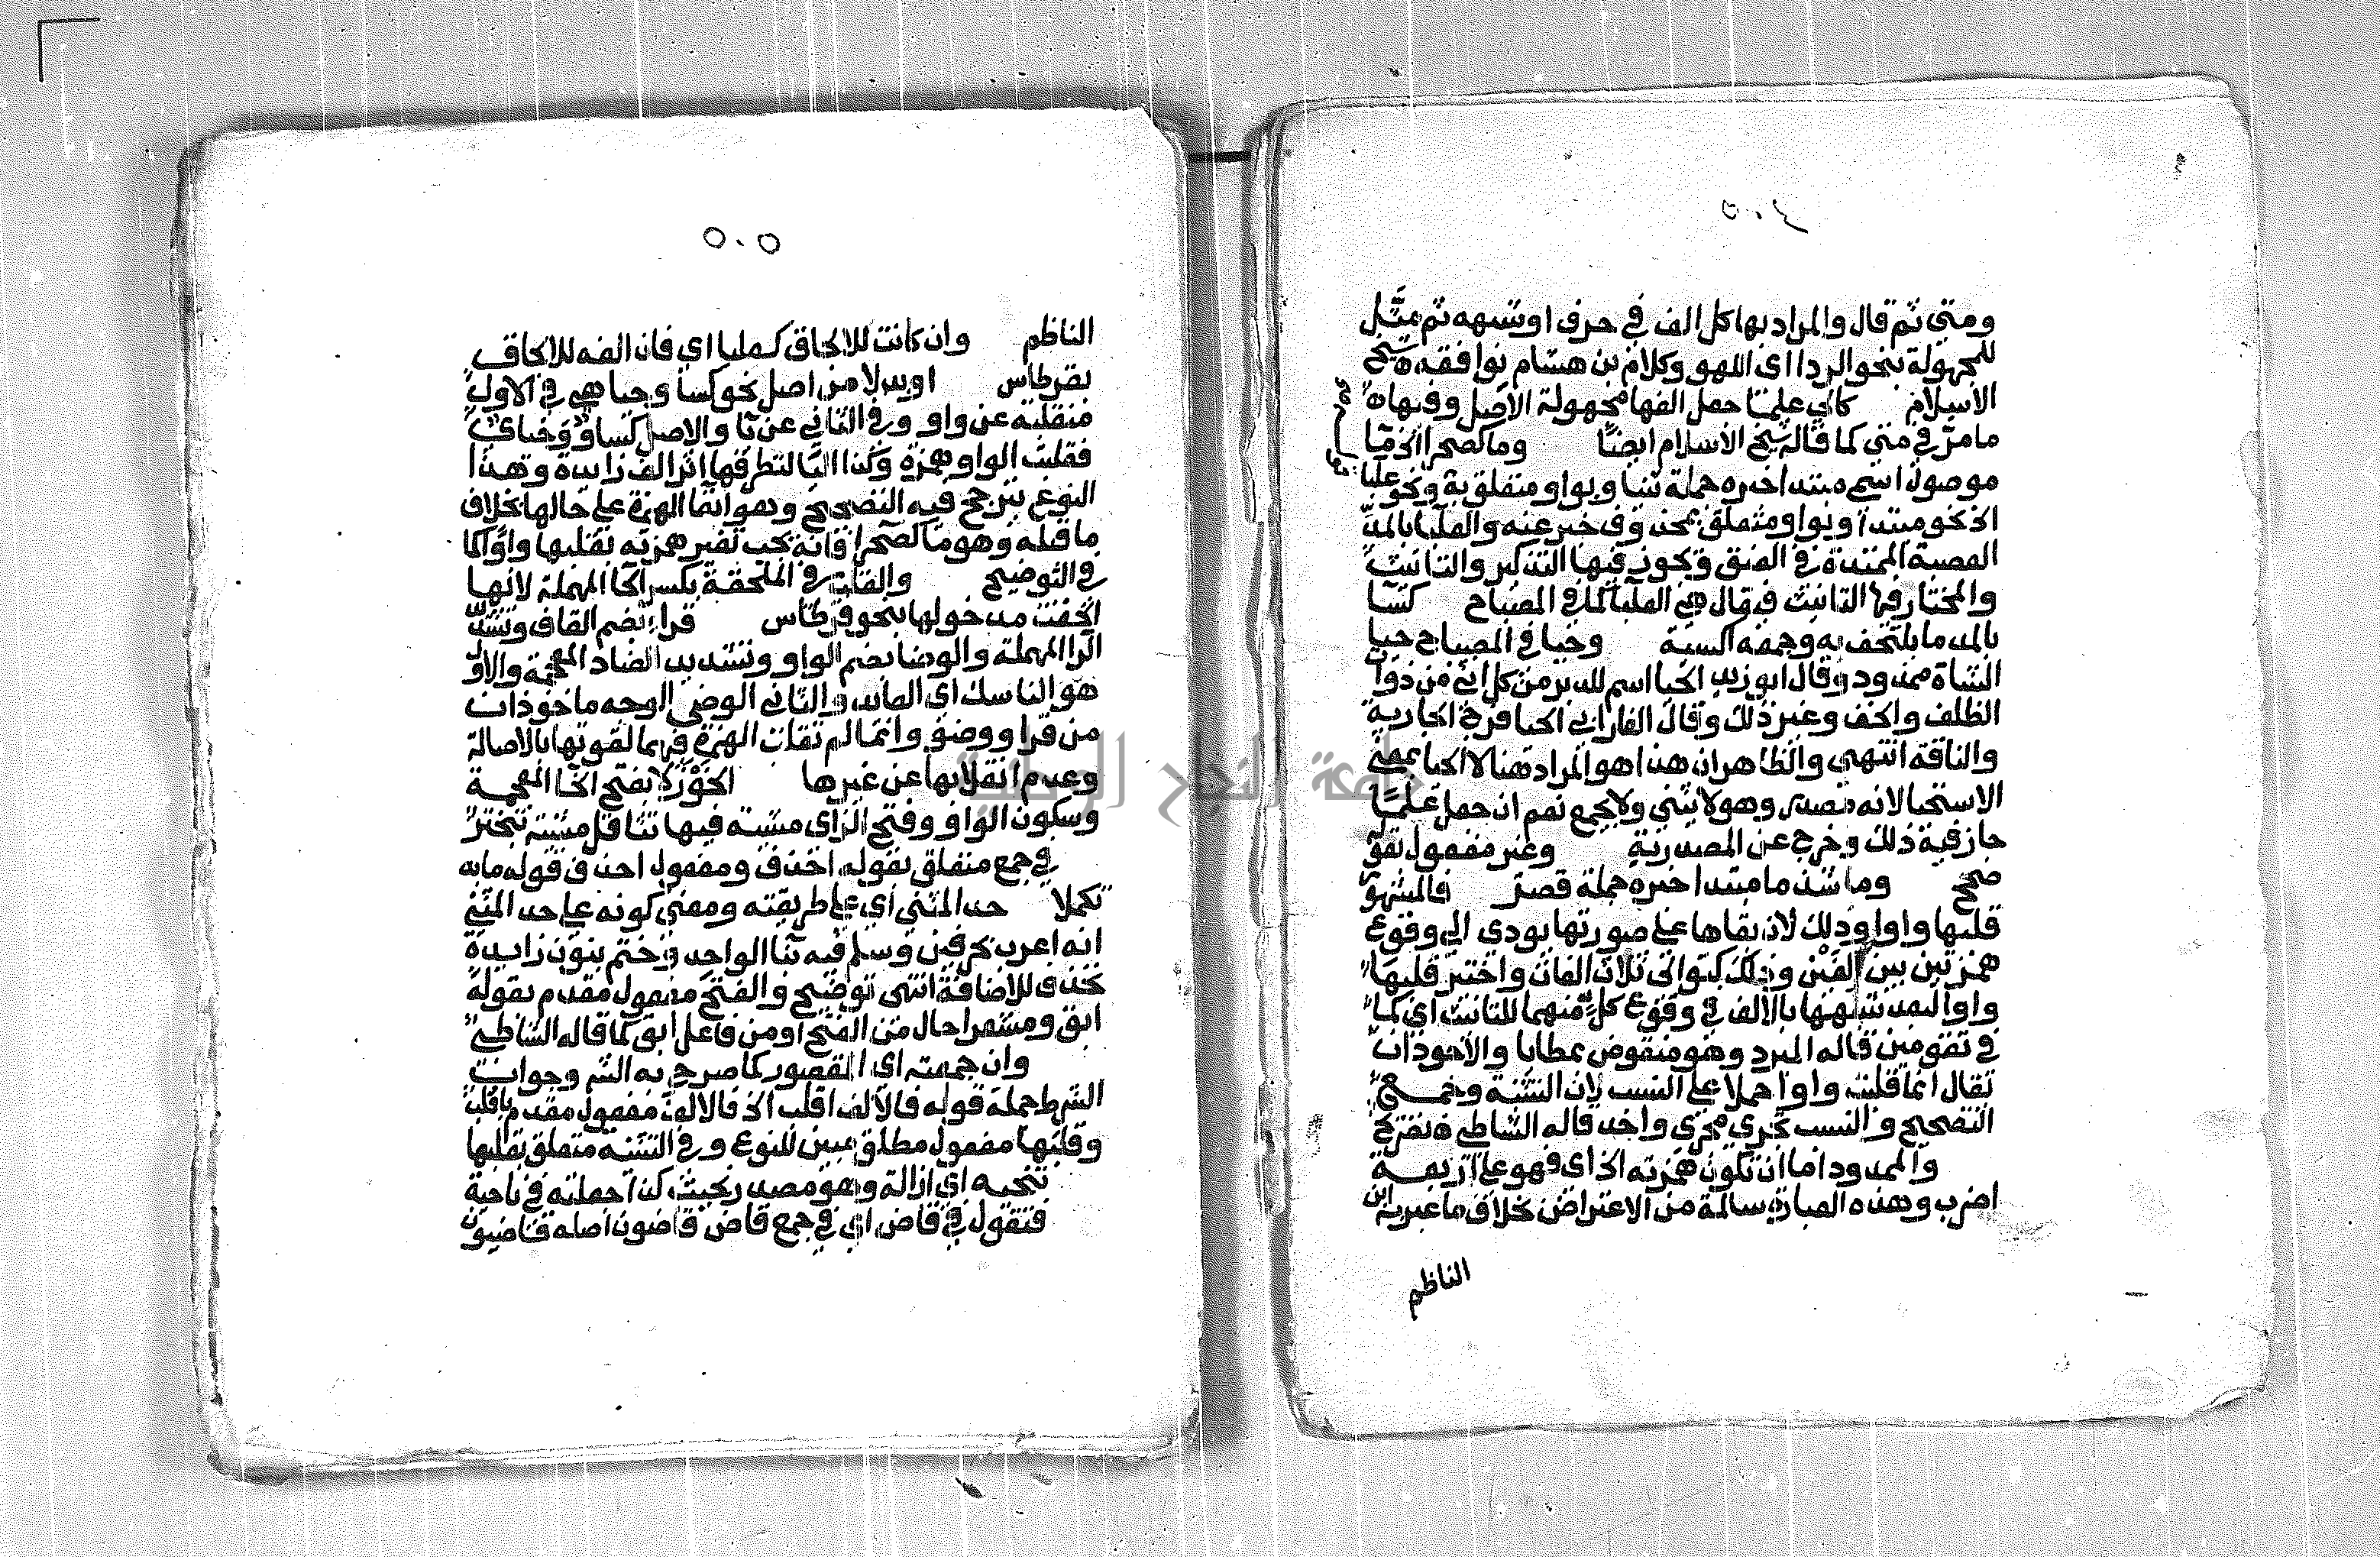 ٥٠٤
ومتى ثم قال والمراد بها كل الف في حرف او شبهه ثم مثل
للمجهولة بنحو الردا اى اللهو وكلام بن هشام يوافقه شيخ
الاسلام كالى علما جعل الفها مجهولة الاصل وفيها
ما مر في متى كما قاله شيخ الاسلام ايضا وما كصحرا الخ ما
موصول اسمي مبتدا خبره جملة ثنيا وبواو متعلق به ونحو عليا
الخ نحو مبتدا وبواو متعلق بمحذوف خبر عنه والعلبا بالمد
العصبة الممتدة في العنق ويكون فيها التذكير والتانيث
والمختار فيها التانيث فيقال هي العلبا المصباح كسا
بالمد ما يلتحف به وجمعه اكسية وحيا في المصباح حيا
الشاة ممدود وقال ابو زيد الحيا اسم للدبر من كل انثى من ذوات
الظلف والخف وغير ذلك وقال الفارابي الحيا فرج الجارية
والناقة انتهى والظاهر ان هذا هو المراد هنا لا الحيا بمعنى
الاستحيا لانه مصدر وهو لا يثنى ولا يجمع نعم ان جعل علما
جاز فيه ذلك وخرج عن المصدرية وغير مفعول بقوله
صحح وما شذ ما مبتدا خبره جملة قصر فالمشهور
قلبها واوا وذلك لان بقاها على صورتها يودى الى وقوع
همزتين بين الفين وذلك كتوالى ثلاث الفات واختير قلبها
واوا لبعد شبهها بالالف في وقوع كل منهما للتانيث اى كما
في تقومين قاله المبرد وهو منقوض بمطايا والاجود ان
يقال انما قلبت واوا حملا على النسب لان التثنية وجمع
التصحيح والنسب تجري مجرى واحد قاله الشاطبي
والممدود اما ان تكون همزته الخ اى فهو على اربعة
اضرب وهذه العبارة سالمة من الاعتراض بخلاف ما عبر به ابن
الناظم
٥٠٥
الناظم وان كانت للالحاق كعلبا اي فان الفه للالحاق
بقرطاس او بدلا من اصل نحو كسا وحيا هي في الاول
منقلبة عن واو وفي الثاني عن يا والاصل كساو وحياي
فقلبت الواو همزة وكذا اليا لتطرفها اثر الف زايدة وهذا
النوع يترجح فيه التصحيح وهو ابقا الهمزة على حالها بخلاف
ما قبله وهو ما كصحرا فانه يجب تغير همزته بقلبها واوا كما
في التوضيح والعلبا الملحقة بكسر الحا المهملة لانها
الحقت مدخولها بنحو قرطاس قراء بضم القاف وتشديد
الرا المهملة والوضا بضم الواو وتشديد الضاد المعجمة والاول
هو الناسك اى العابد والثاني الوضي الوجه ماخوذان
من قرا ووضو وانما لم تقلب الهمزة فيهما لقوتها بالاصالة
وعدم انقلابها عن غيرها الخوزلا بفتح الخا المعجمة
وسكون الواو وفتح الزاى مشية فيها تثاقل مشية تبختر
في جمع متعلق بقوله احذف ومفعول احذف قوله ما به
تكملا حد المثنى اي على طريقته ومعنى كونه على حد المثنى
انه اعرب بحرفين وسلم فيه بنا الواحد وختم بنون زايدة
تحذف للاضافة انتهى توضيح والفتح مفعول مقدم بقوله
ابق ومشعرا حال من الفتح او من فاعل ابق كما قاله الشاطبي
وان جمعته اى المقصور كما صرح به الش وجواب
الشرط جملة قوله فالالف اقلب الخ فالالف مفعول مقدم باقلب
وقلبها مفعول مطلق مبين للنوع وفي التثنية متعلق بقلبها
تنحيه اي ازالة وهو مصدر نحيت كذا جعلته في ناحية
فتقول في قاض اي في جمع قاض قاضون اصله قاضيون